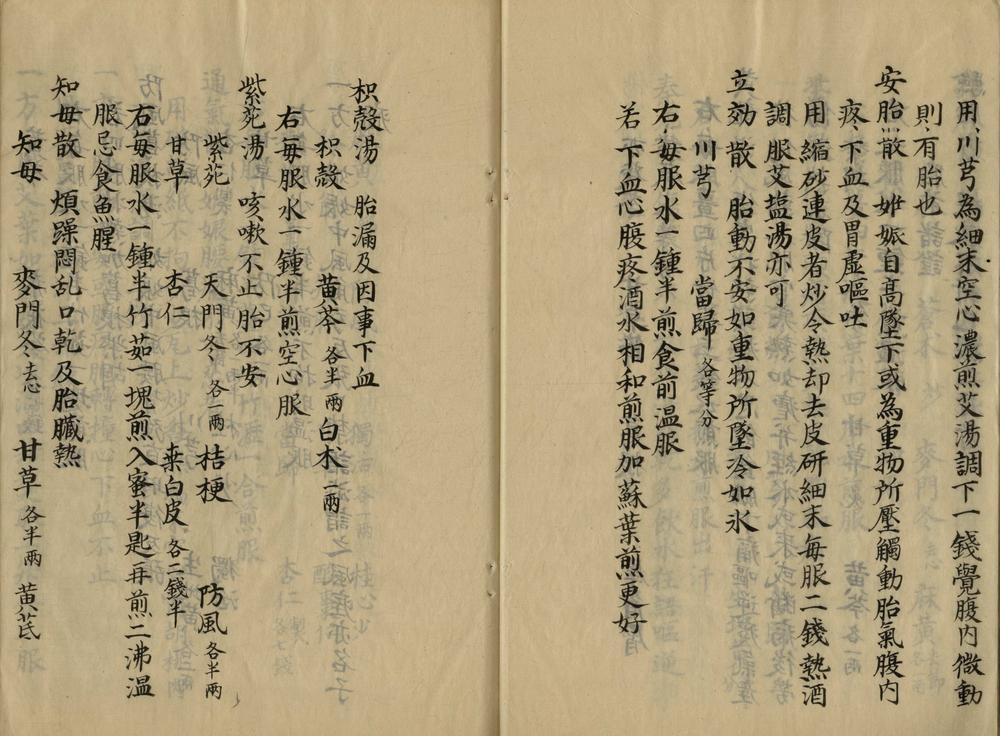 用川芎為細末空心濃煎艾湯調下一錢覺腹内微動
則有胎也
安胎散　妊娠自高墜下或為重物所壓觸動胎氣腹内
疼下血及胃虛嘔吐
用縮砂連皮者炒令熱却去皮研細末每服二錢熱酒
調服艾塩湯亦可
立効散　胎動不安如重物所墜冷如氷
川芎　當歸各等分
右每服水一鍾半煎食前温服
若下血心腹疼酒水相和煎服加蘇葉煎更好
枳殼湯　胎漏及因事下血
枳殼　黄芩各半兩　白术一兩
右每服水一鍾半煎空心服
紫菀湯　咳嗽不止胎不安
紫菀　天門冬各一兩　桔梗　防風各半兩
甘草　杏仁　桒白皮各二錢半
右每服水一鍾半竹茹一塊煎入蜜半匙再煎二沸温
服忌食魚腥
知母散　煩躁悶乱口乾及胎臟熱
知母　麥門冬去心　甘草各半兩　黄芪